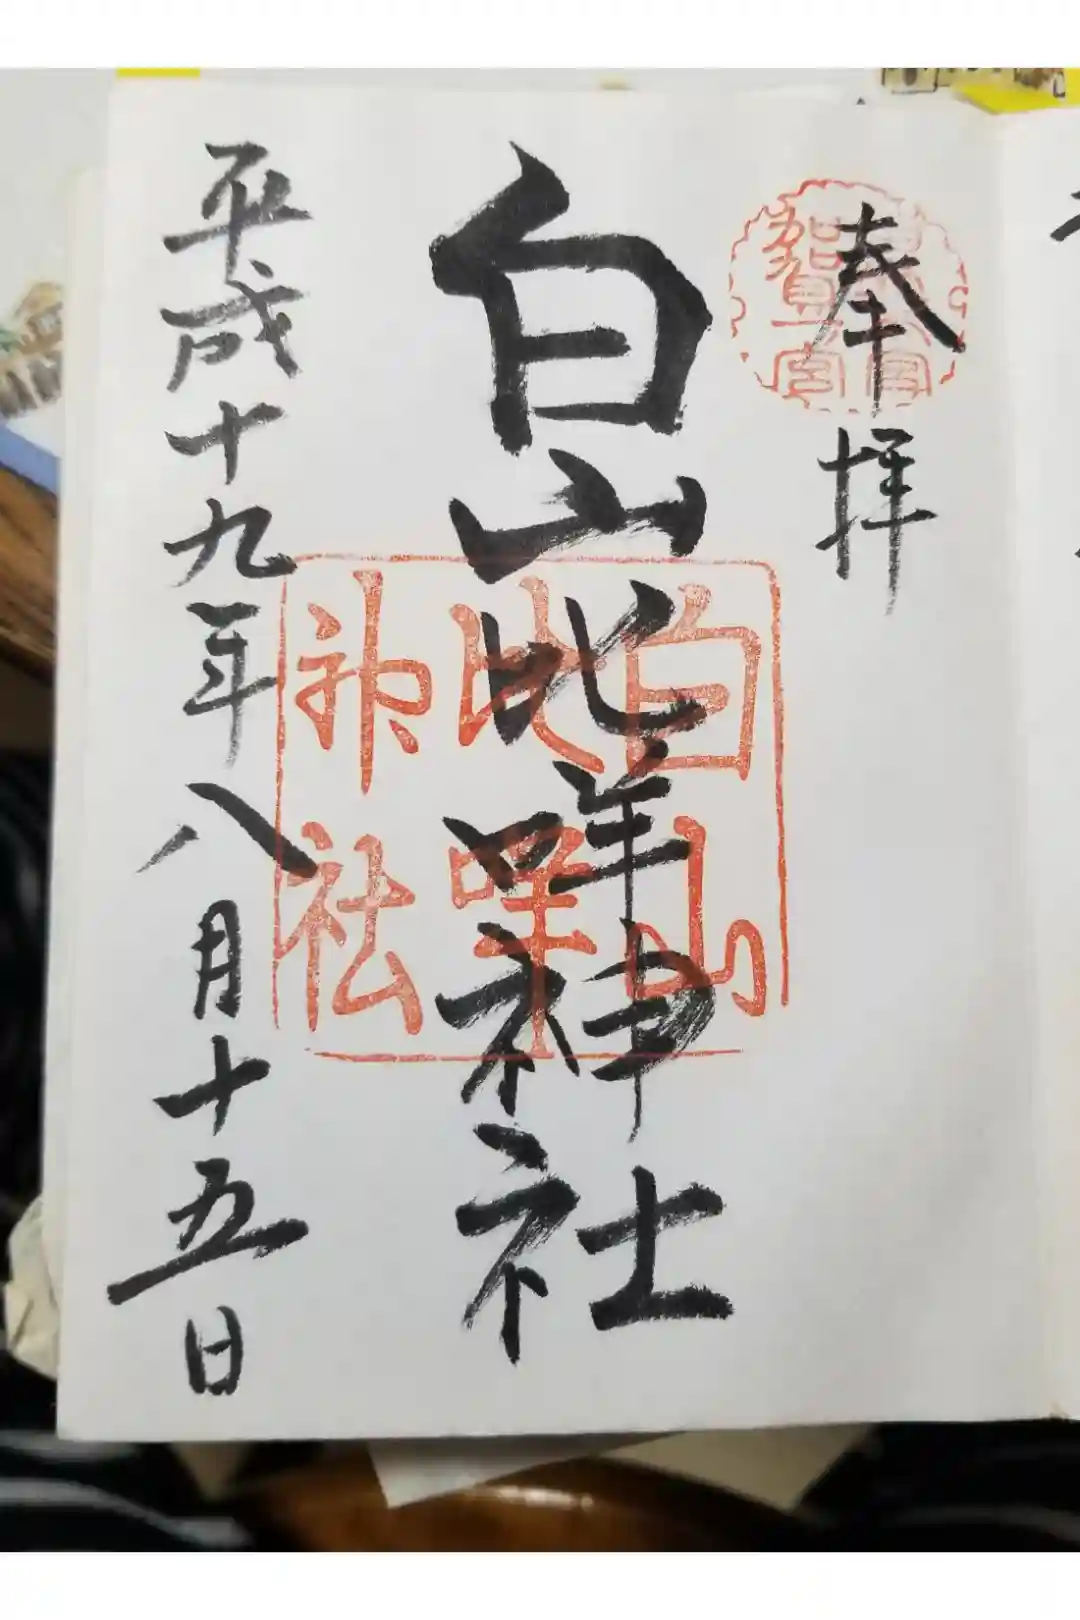 奉拝
白山比咩神社
白山
比咩
神社
平成十九年八月十五日